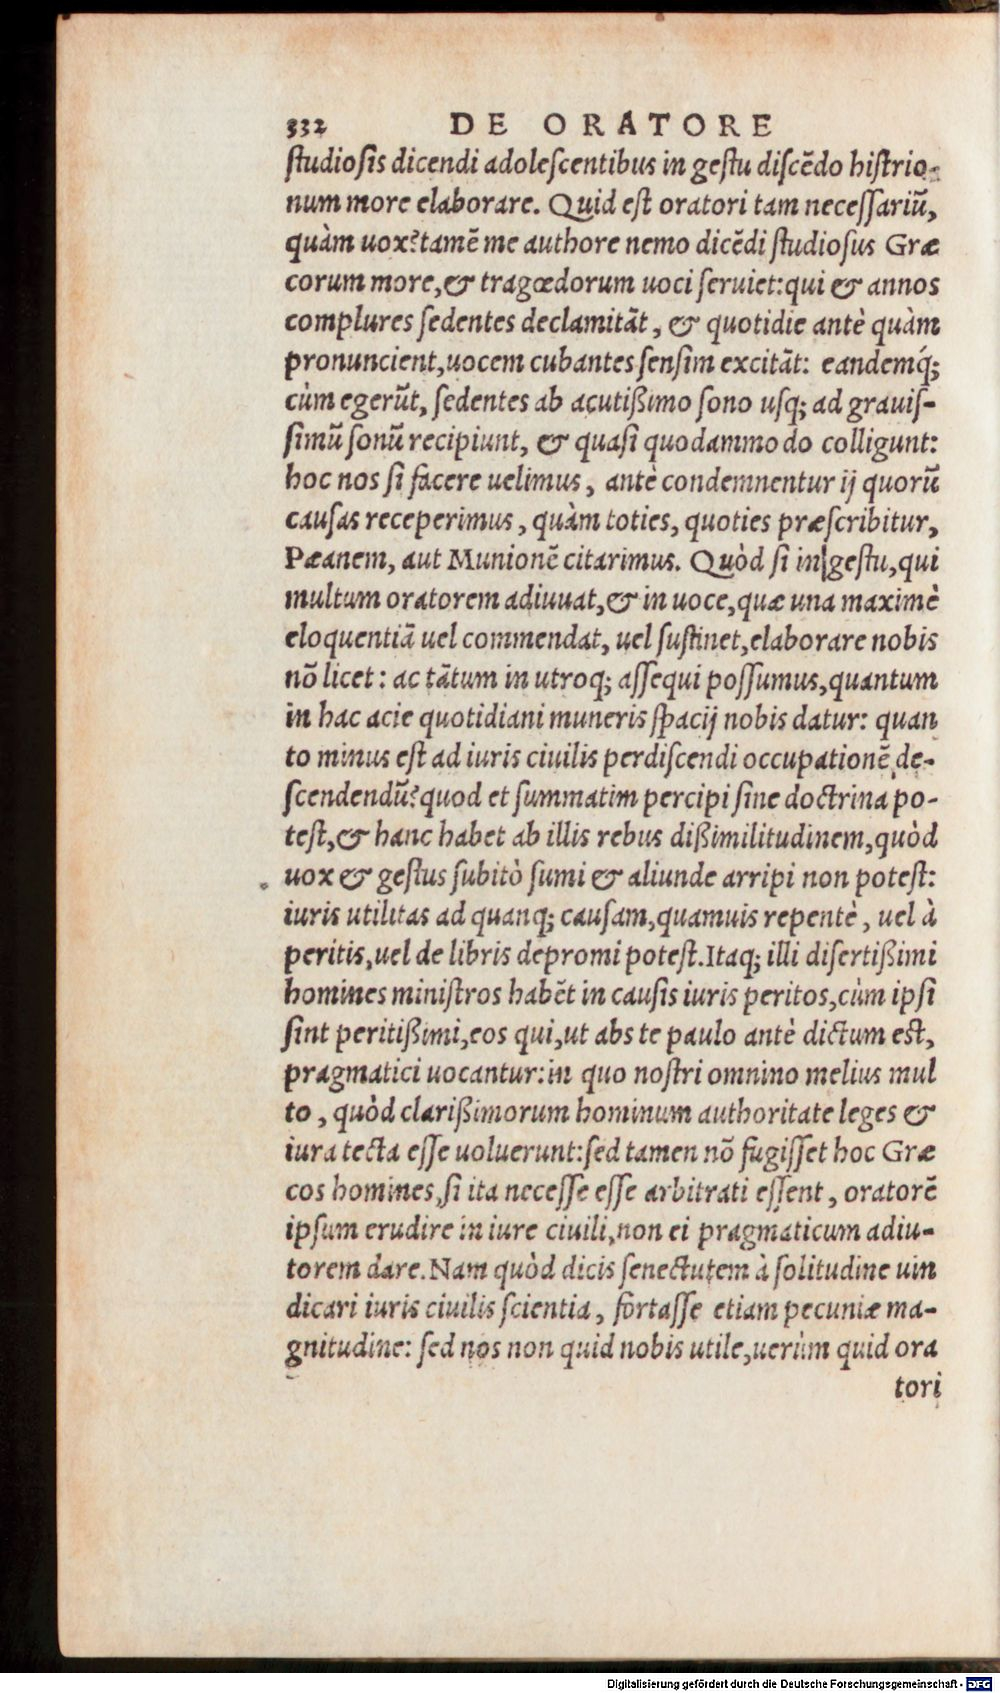 332 DE ORATORE
ſtudioſis dicendi adoleſcentibus in geſtu diſcēdo hiſtrio-
num more elaborare. Quid eſt oratori tam neceſſariū,
quàm uox? tamē me authore nemo dicēdi ſtudioſus Græ
corum more, & tragœdorum uoci ſeruiet: qui & annos
complures ſedentes declamitāt, & quotidie antè quàm
pronuncient, uocem cubantes ſenſim excitāt: eandemq́;
cùm egerūt, ſedentes ab acutißimo ſono uſq; ad grauiſ-
ſimū ſonū recipiunt, & quaſi quodammodo colligunt:
hoc nos ſi facere uelimus, antè condemnentur ij quorū
cauſas receperimus, quàm toties, quoties præſcribitur,
Pæanem, aut Munionē citarimus. Quòd ſi in geſtu, qui
multum oratorem adiuuat, & in uoce, quæ una maximè
eloquentiā uel commendat, uel ſuſtinet, elaborare nobis
nō licet: ac tātum in utroq; aſſequi poſſumus, quantum
in hac acie quotidiani muneris ſpacij nobis datur: quan
to minus eſt ad iuris ciuilis perdiſcendi occupationē de-
ſcendendū? quod et ſummatim percipi ſine doctrina po-
teſt, & hanc habet ab illis rebus dißimilitudinem, quòd
uox & geſtus ſubitò ſumi & aliunde arripi non poteſt:
iuris utilitas ad quanq; cauſam, quamuis repentè, uel à
peritis, uel de libris depromi poteſt. Itaq; illi diſertißimi
homines miniſtros habēt in cauſis iuris peritos, cùm ipſi
ſint peritißimi, eos qui, ut abs te paulo antè dictum eſt,
pragmatici uocantur: in quo noſtri omnino melius mul
to, quòd clarißimorum hominum authoritate leges &
iura tecta eſſe uoluerunt: ſed tamen nō fugiſſet hoc Græ
cos homines, ſi ita neceſſe eſſe arbitrati eſſent, oratorē
ipſum erudire in iure ciuili, non ei pragmaticum adiu-
torem dare. Nam quòd dicis ſenectutem à ſolitudine uin
dicari iuris ciuilis ſcientia, fortaſſe etiam pecuniæ ma-
gnitudine: ſed nos non quid nobis utile, uerùm quid ora
tori
Digitalisierung gefördert durch die Deutsche Forschungsgemeinschaft - DFG